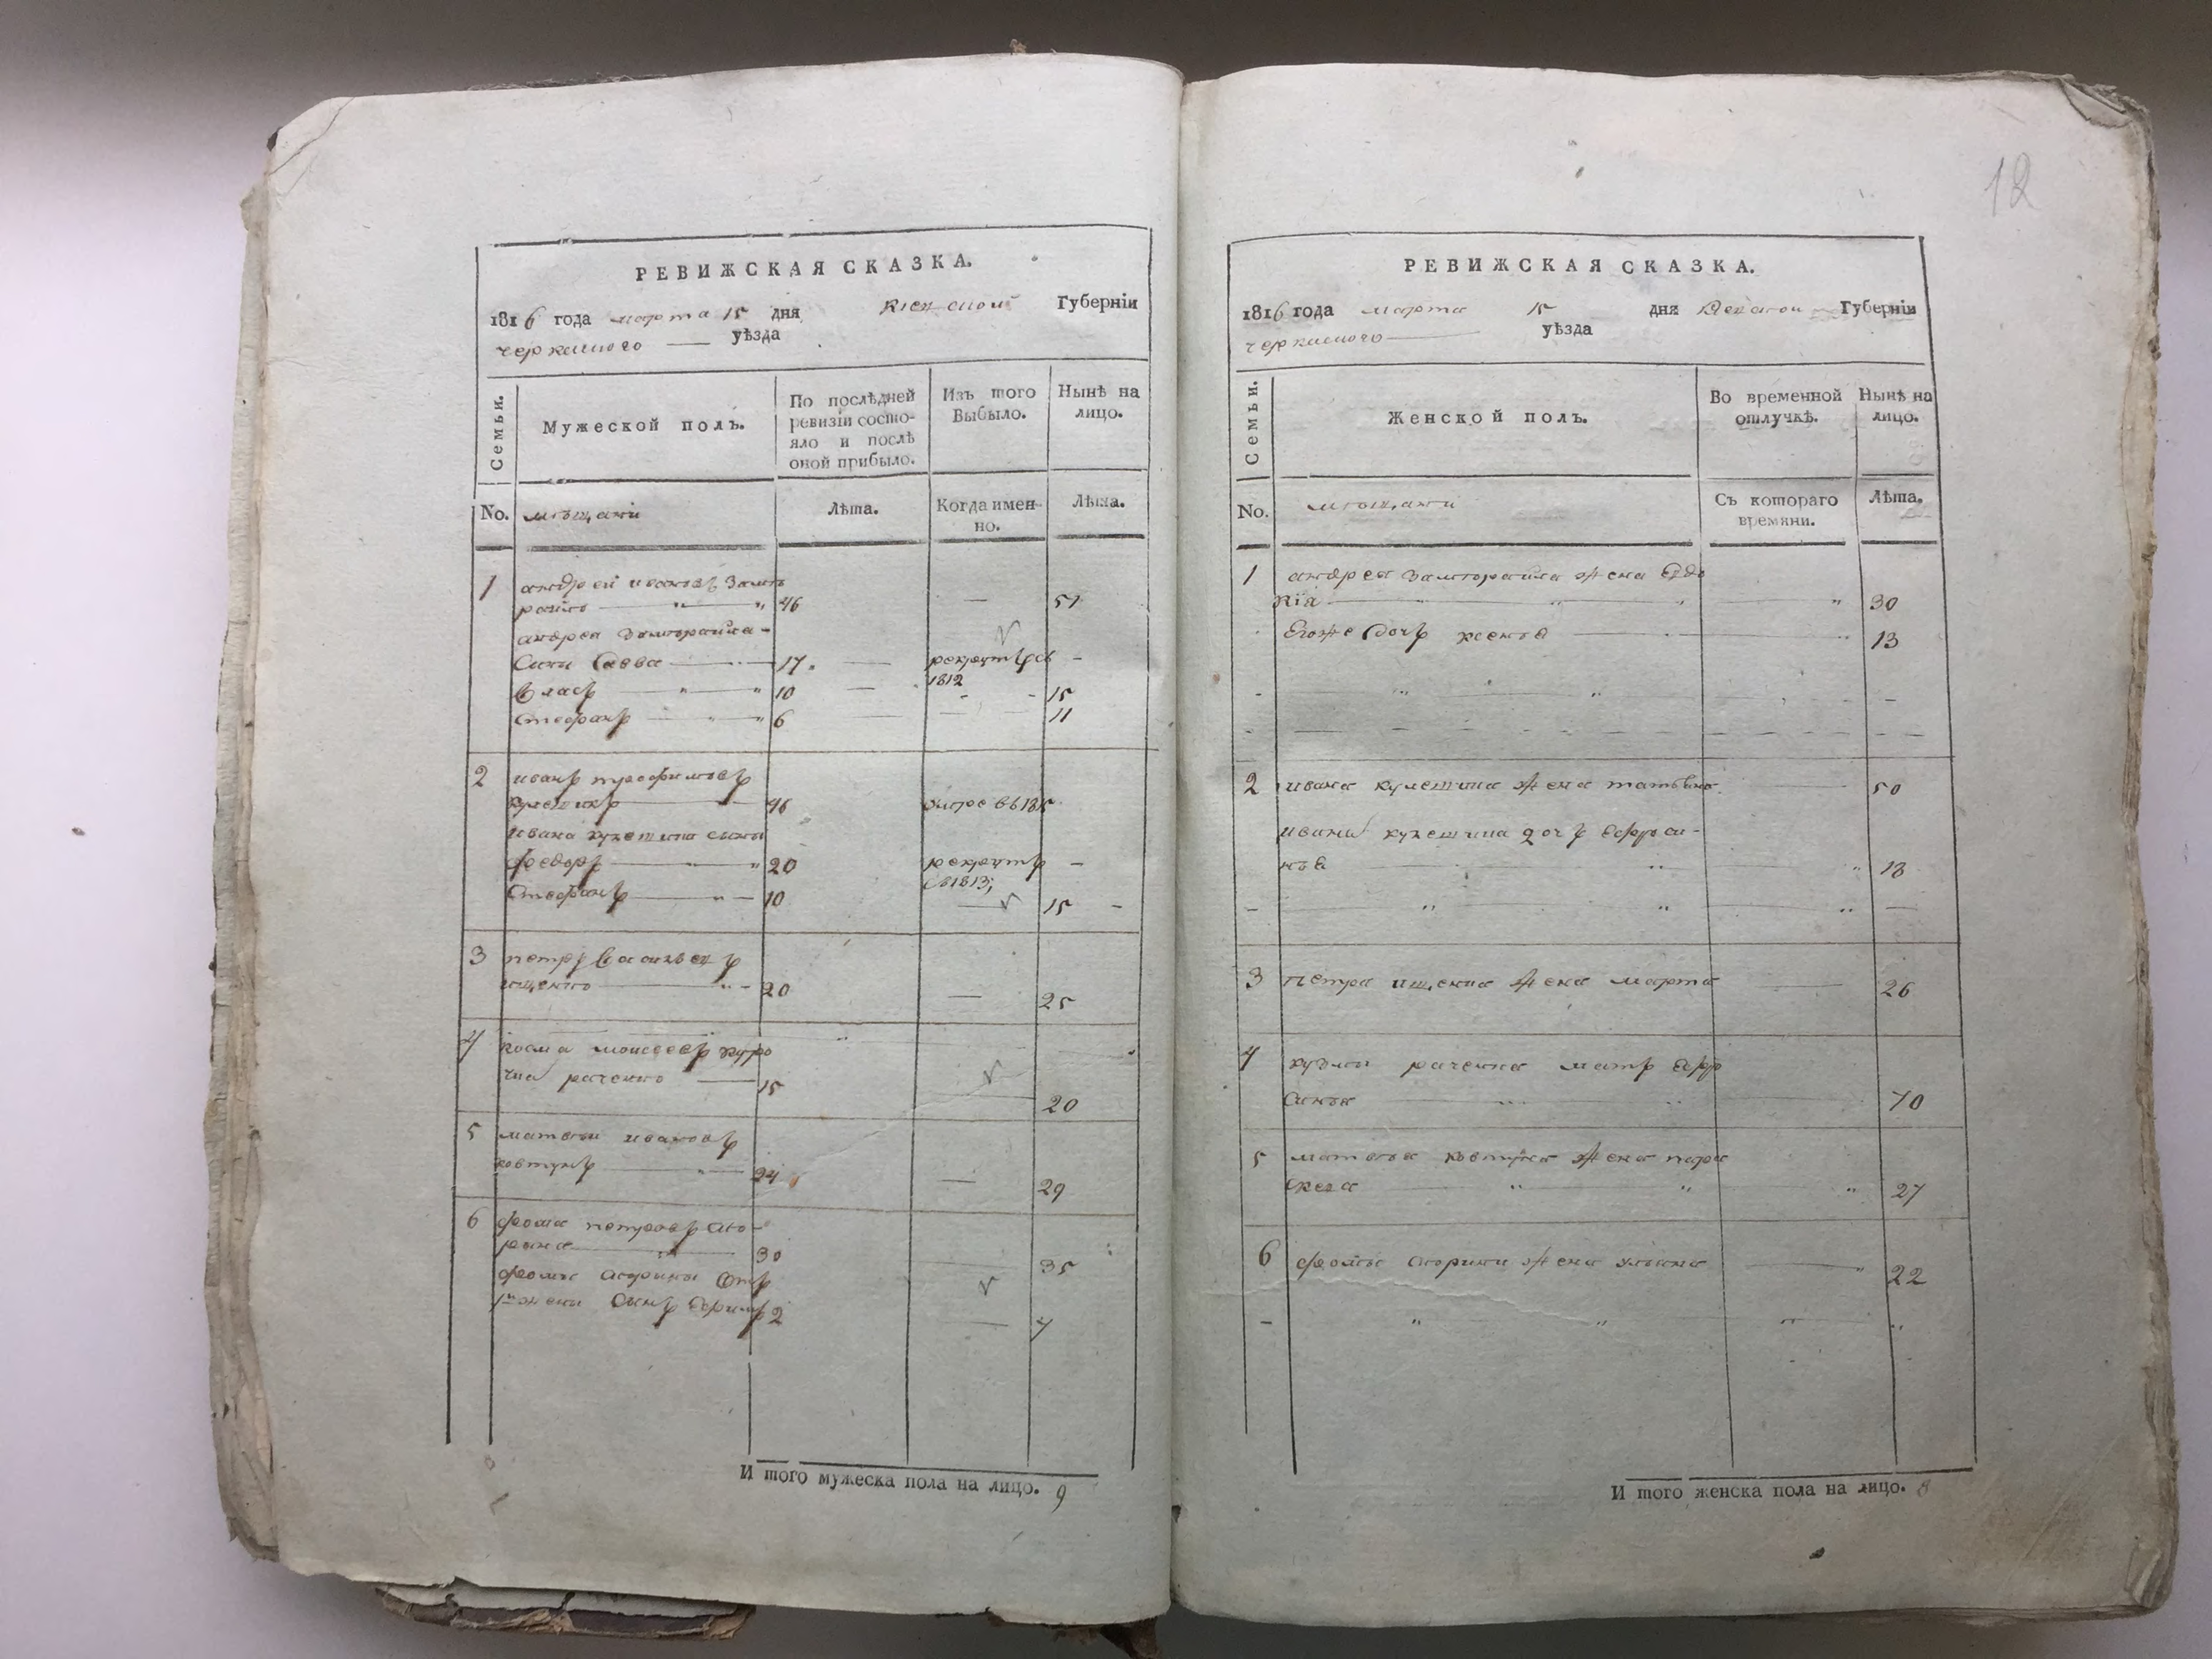 РЕВИЖСКАЯ СКАЗКА.
1816 года марта 15 дня Киевской Губерніи
черкаского уѣзда
Семьи.
Мужеской полъ.
По послѣдней ревизіи состо-
яло и послѣ оной прибыло.
Изъ того Выбыло.
Нынѣ на лицо.
No. мѣщани Лѣта. Когда имен-
но. Лѣта.
1 андрей ивановъ
46 — 51
андрея
сини Савва 17 рекрутъ съ 1812 -
Власъ 10 15
стефанъ 6 11
2 иванъ трофимовъ
46
ивана сыны
федоръ 20 рекрутъ -
въ 1813;
Стефанъ 10 15 -
3 петръ Васильевъ
ищенко 20 — 25
4 косма моисеевъ
раченко 15 20
5 матвѣй ивановъ
ковтунъ 24 — 29
6 фома петровъ
30 35
фомы отъ
1й жени сынъ ефимъ 2 7
И того мужеска пола на лицо. 9
12
РЕВИЖСКАЯ СКАЗКА.
1816 года марта 15 дня Киевской Губерніи
черкаского уѣзда
Семьи.
Женской полъ.
Во временной отлучкѣ.
Нынѣ на лицо.
No. мѣщани Съ котораго времяни. Лѣта.
1 андрея жена Евдо
кія 30
Егоже дочь ксенія 13
2 ивана жена татьяна 50
ивана дочь ефроси-
нія 18
3 петра ищенка жена марта 26
4 кузми раченка матъ ефро
синія 70
5 матвѣя ковтуна жена пара
скева 27
6 фомы жена уляна 22
И того женска пола на лицо. 8